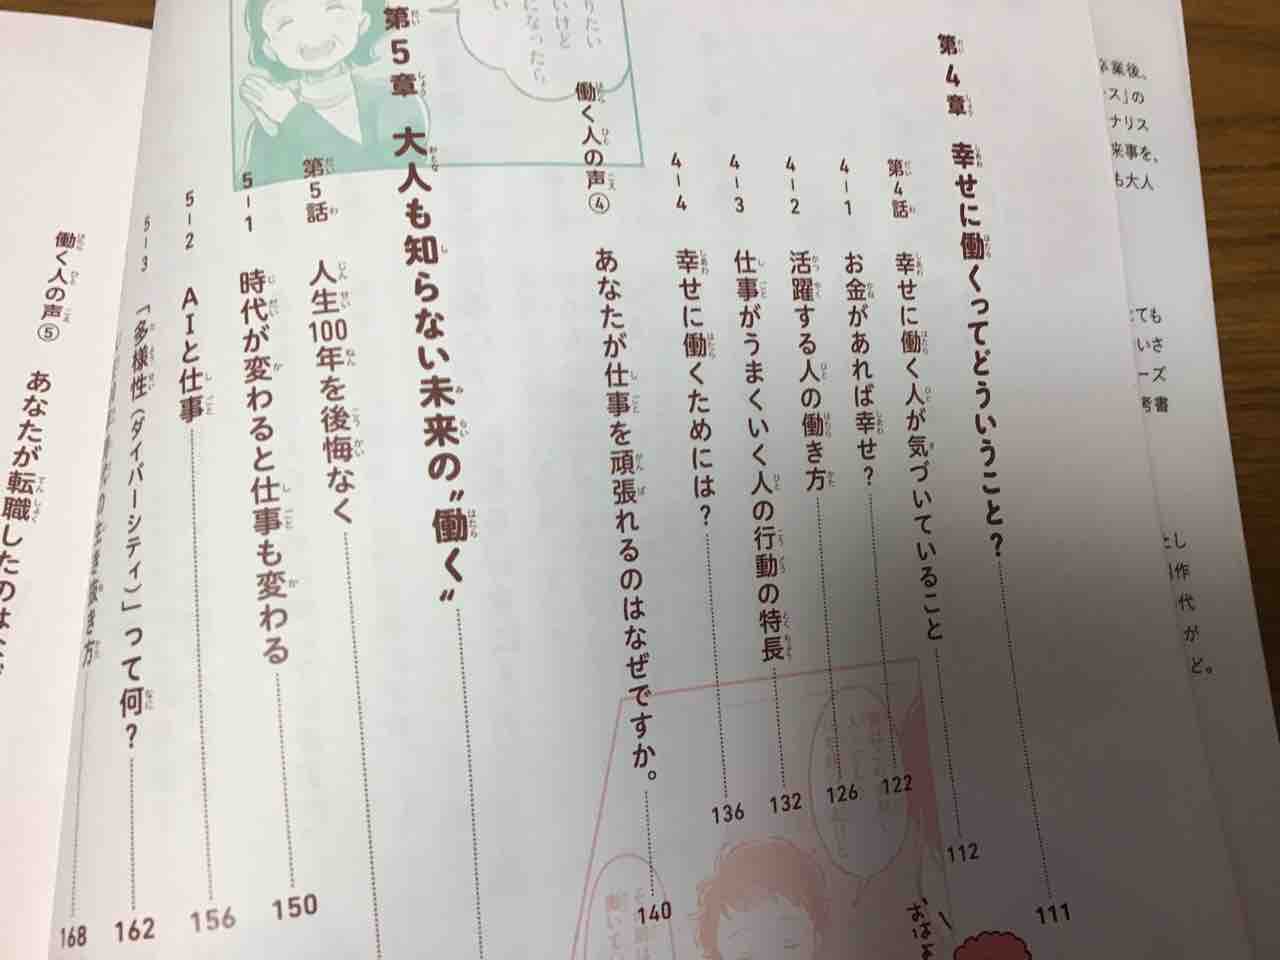 第4章 幸せに働くってどういうこと？ 111
第4話 幸せに働く人が気づいていること 112
4-1 お金があれば幸せ？ 122
4-2 活躍する人の働き方 126
4-3 仕事がうまくいく人の行動の特長 132
4-4 幸せに働くためには？ 136
働く人の声④ あなたが仕事を頑張れるのはなぜですか。 140
第5章 大人も知らない未来の“働く”
第5話 人生100年を後悔なく
5-1 時代が変わると仕事も変わる 150
5-2 AIと仕事 156
5-3 「多様性（ダイバーシティ）」って何？ 162
き方 168
働く人の声⑤ あなたが転職したのは
りたい
いけど
になったら
い
卒業後、
ス」の
ナリス
来事を、
も大人
ても
いさ
ーズ
考書
し
作
代
が
ど。